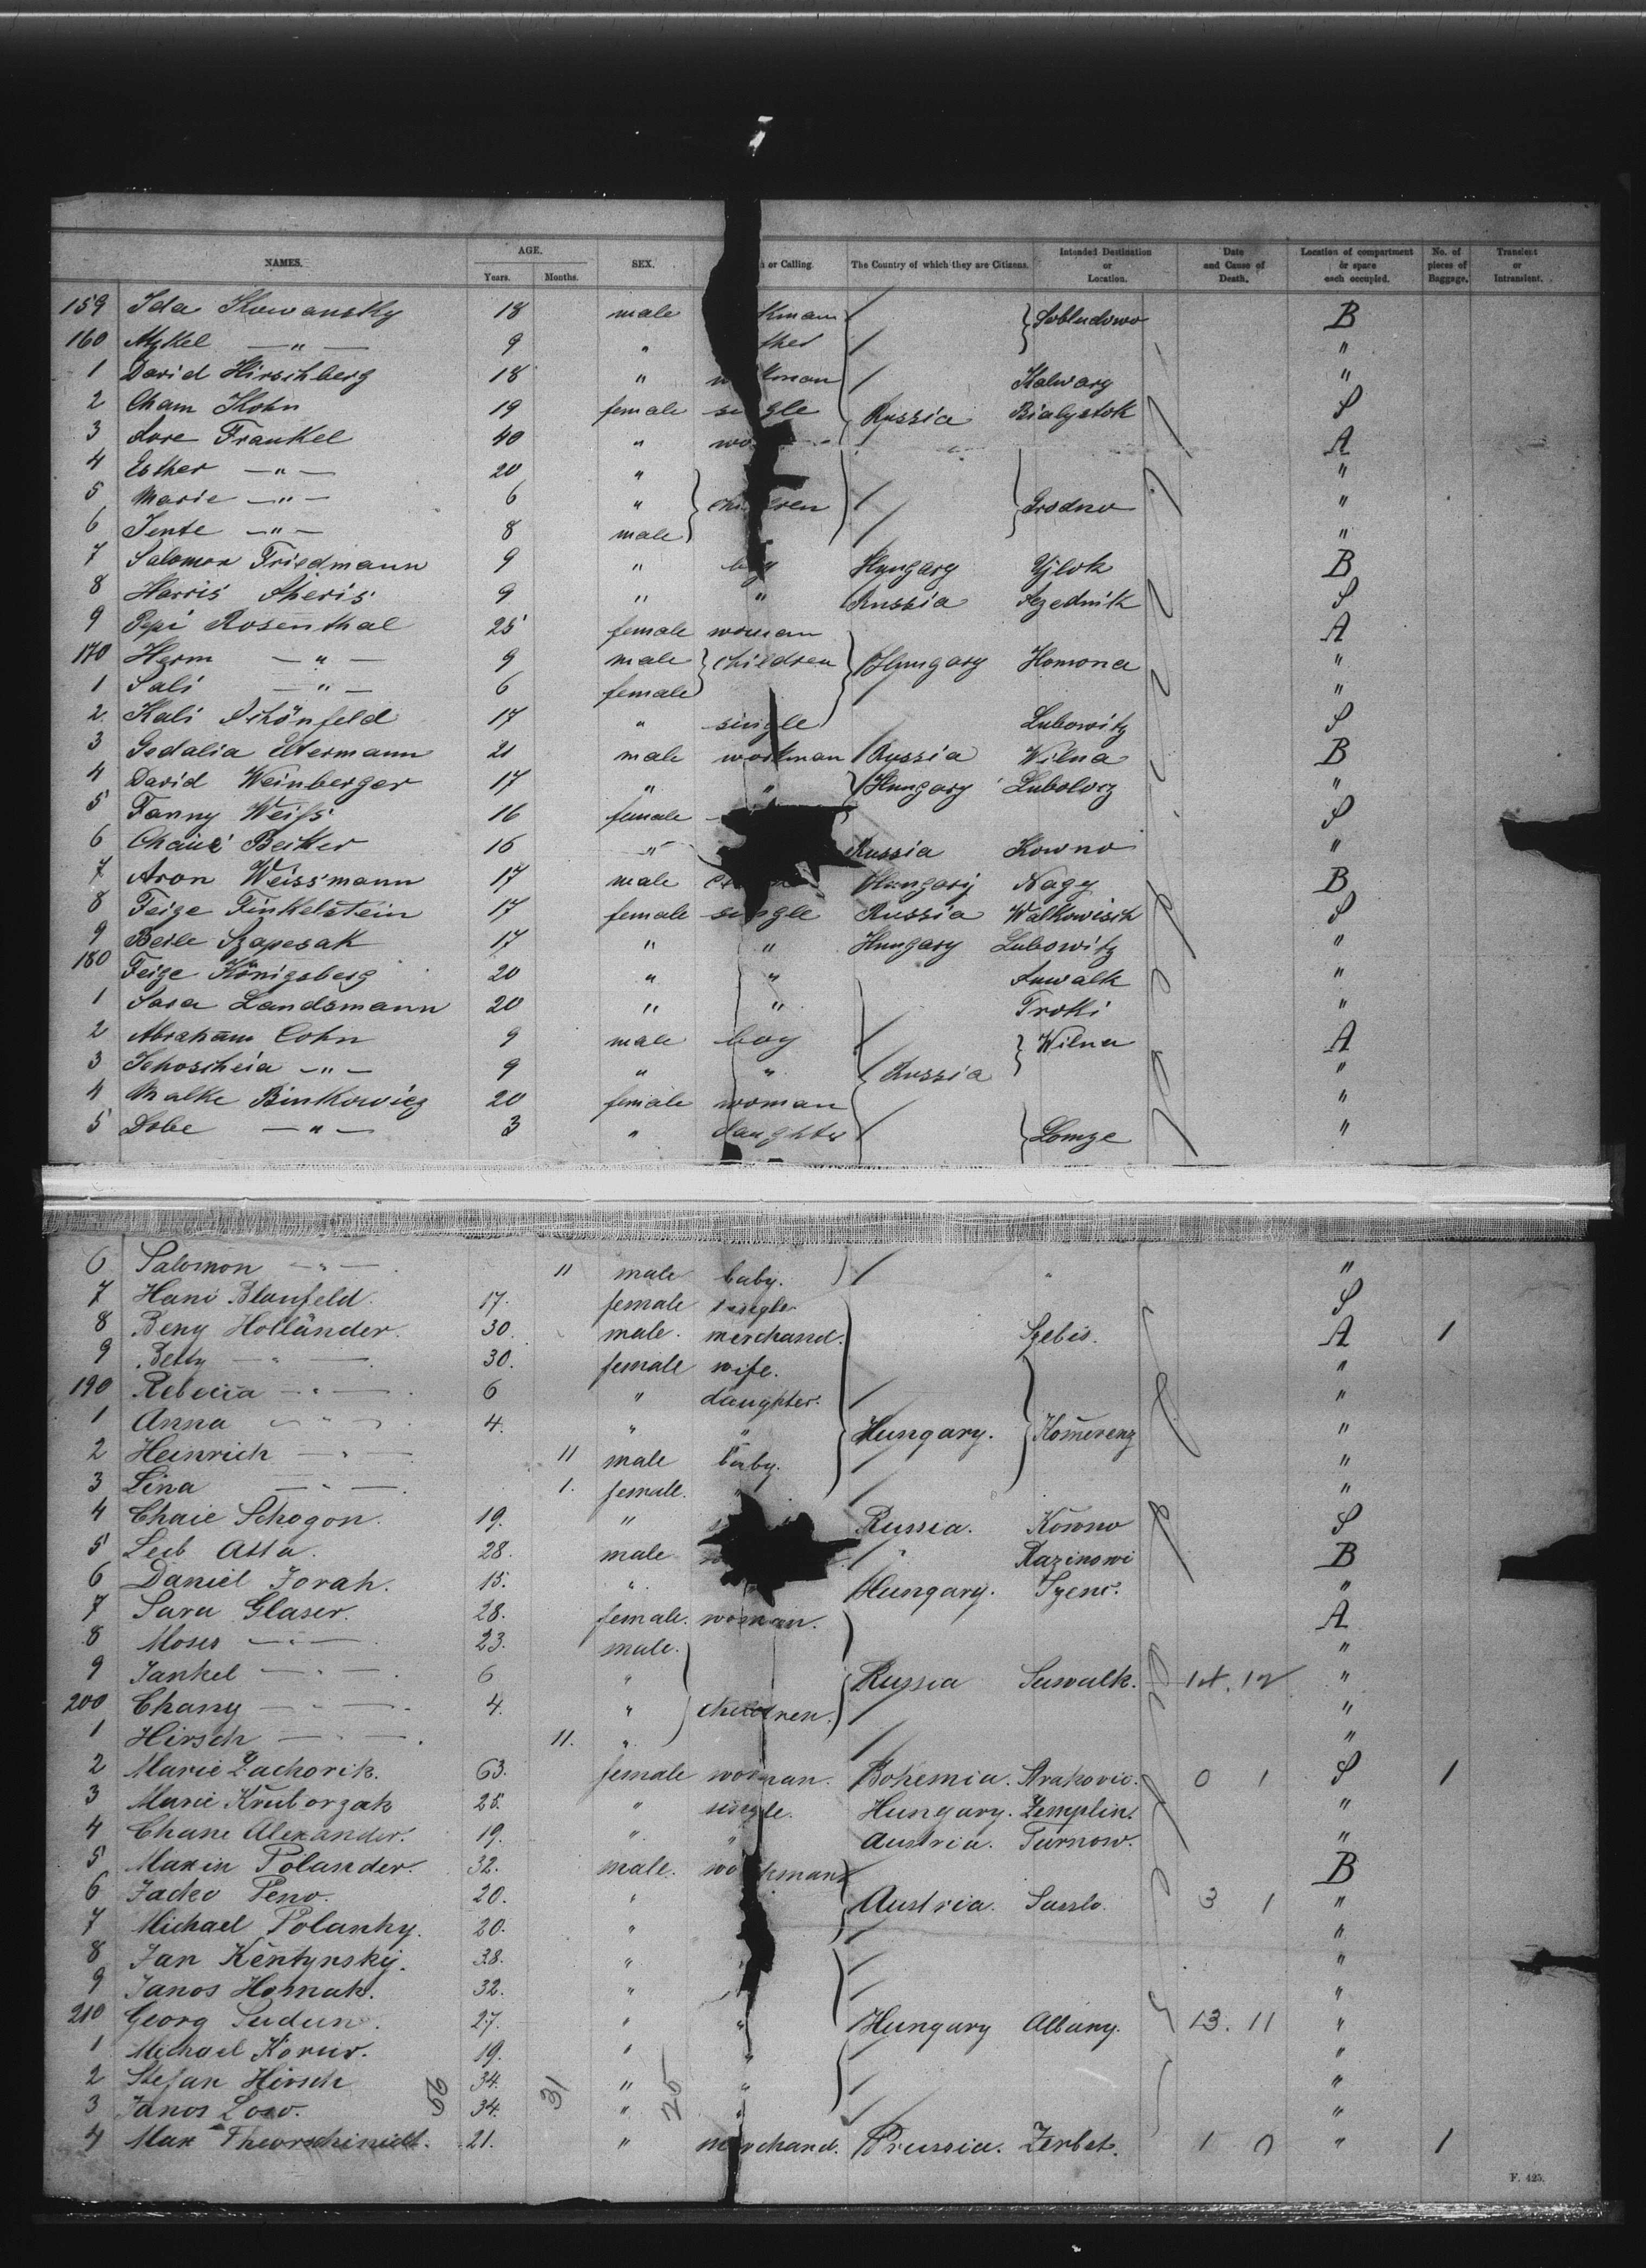 NAMES. AGE. Years. Months. SEX. or Calling. The Country of which they are Citizens. Intended Destination or Location. Date and Cause of Death. Location of compartment or space each occupied. No. of pieces of Baggage. Transient or Intransient.
159 Ida 18 male B
160 Mykel —"— 9 " "
1 David Hirschberg 18 " Kalwary "
2 Cham Kohn 19 female single Russia Bialystok S
3 Lore Frankel 40 " A
4 Esther —"— 20 " "
5 Marie —"— 6 " children Grodno "
6 Jente —"— 8 male "
7 Salomon Friedmann 9 " boy Hungary Ujlok B
8 Harris 9 " " Russia S
9 Pepi Rosenthal 25 female woman A
170 Herm —"— 9 male children Hungary Homona "
1 Sali —"— 6 female "
2 Kali Schönfeld 17 " single Lubowitz S
3 Gedalia Eltermann 21 male workman Russia Wilna B
4 David Weinberger 17 " " Hungary "
5 Fanny Weiss 16 female S
6 Beiker 16 " Russia Kowno "
7 Aron Weissmann 17 male Hungary Nagy B
8 Feige Finkelstein 17 female single Russia Walkowisch S
9 Beile 17 " " Hungary Lubowitz "
180 Feige Königsberg 20 " " Suwalk "
1 Sara Landsmann 20 " " Troki "
2 Abraham Cohn 9 male boy Wilna A
3 Schoscheia —"— 9 " " Russia "
4 Malke Binkowicz 20 female woman "
5 Dobe —"— 3 " daughter Lomze "
6 Salomon —"— 11 male baby. " "
7 Hani Blaufeld. 17. female single S
8 Beny Holländer. 30. male. merchand. A 1
9 Betty —"— 30. female wife. "
190 Rebecca —"— 6 " daughter. "
1 Anna —"— 4. " " Hungary. "
2 Heinrich —"— 11 male baby. "
3 Lina —"— 1. female. "
4 Chaie Schogon. 19. " Russia. Kowno S
5 Leib 28. male " Razinowi B
6 Daniel Jorah. 15. " Hungary. "
7 Sara Glaser. 28. female. woman. A
8 Moses —"— 23. male. "
9 Jankel —"— 6 " Russia Suwalk. "
200 Chany —"— 4. " children. "
1 Hirsch —"— 11. " "
2 Marie Zachorik. 63. female woman. Bohemia. 0 1 S 1
3 Marie 25. " single. Hungary. Zemplin. "
4 Chane Alexander. 19. " " Austria. Tarnow. "
5 Maxin Polander. 32. male. workman B
6 Jacko Peno. 20. " Austria. 3 1 "
7 Michael Polanky. 20. " "
8 Jan Kentynskij. 38. " "
9 Janos Homak. 32. " "
210 Georg 27. " " Hungary Albany. 13. 11 "
1 Michael 19. " " "
2 Stefan Hirsch 34. " " "
3 Janos 34. " " "
56 31 25
4 Max 21. " merchand. Prussia. Zerbst. 1 0 " 1
F. 425.